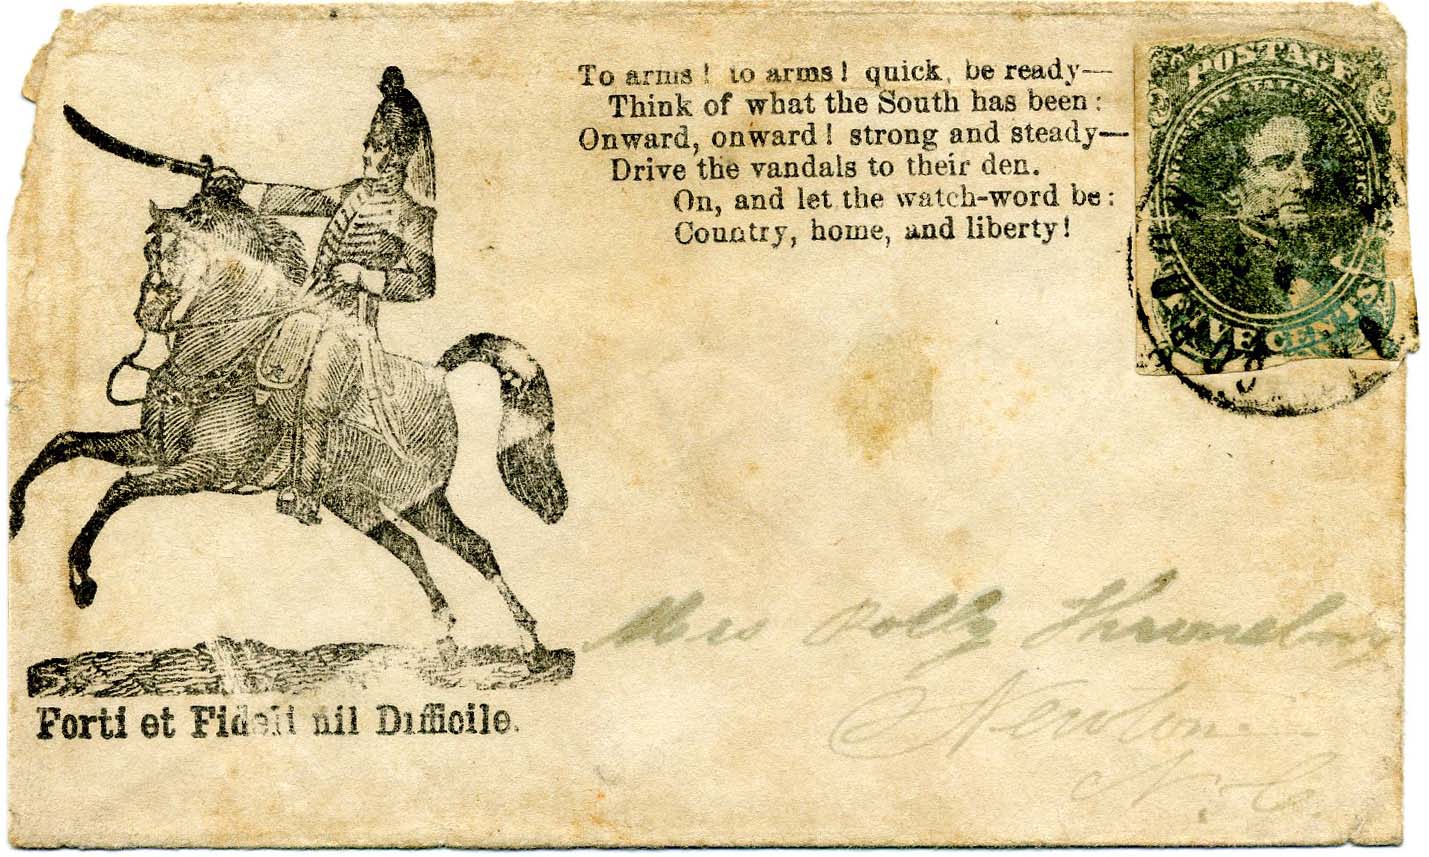 To arms! to arms! quick, be ready—
Think of what the South has been:
Onward, onward! strong and steady—
Drive the vandals to their den.
On, and let the watch-word be:
Country, home, and liberty!
POSTAGE
FIVE CENTS
Forti et Fideli nil Difficile.
Mrs Polly
Newton
N. C.